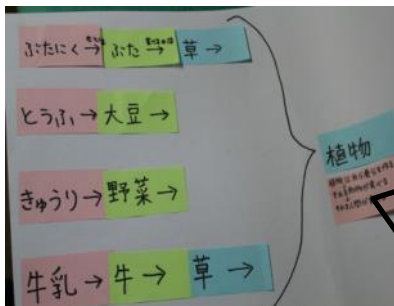 ぶたにく→ぶた→草→
とうふ→大豆→
きゅうり→野菜→
牛乳→牛→草→
植物